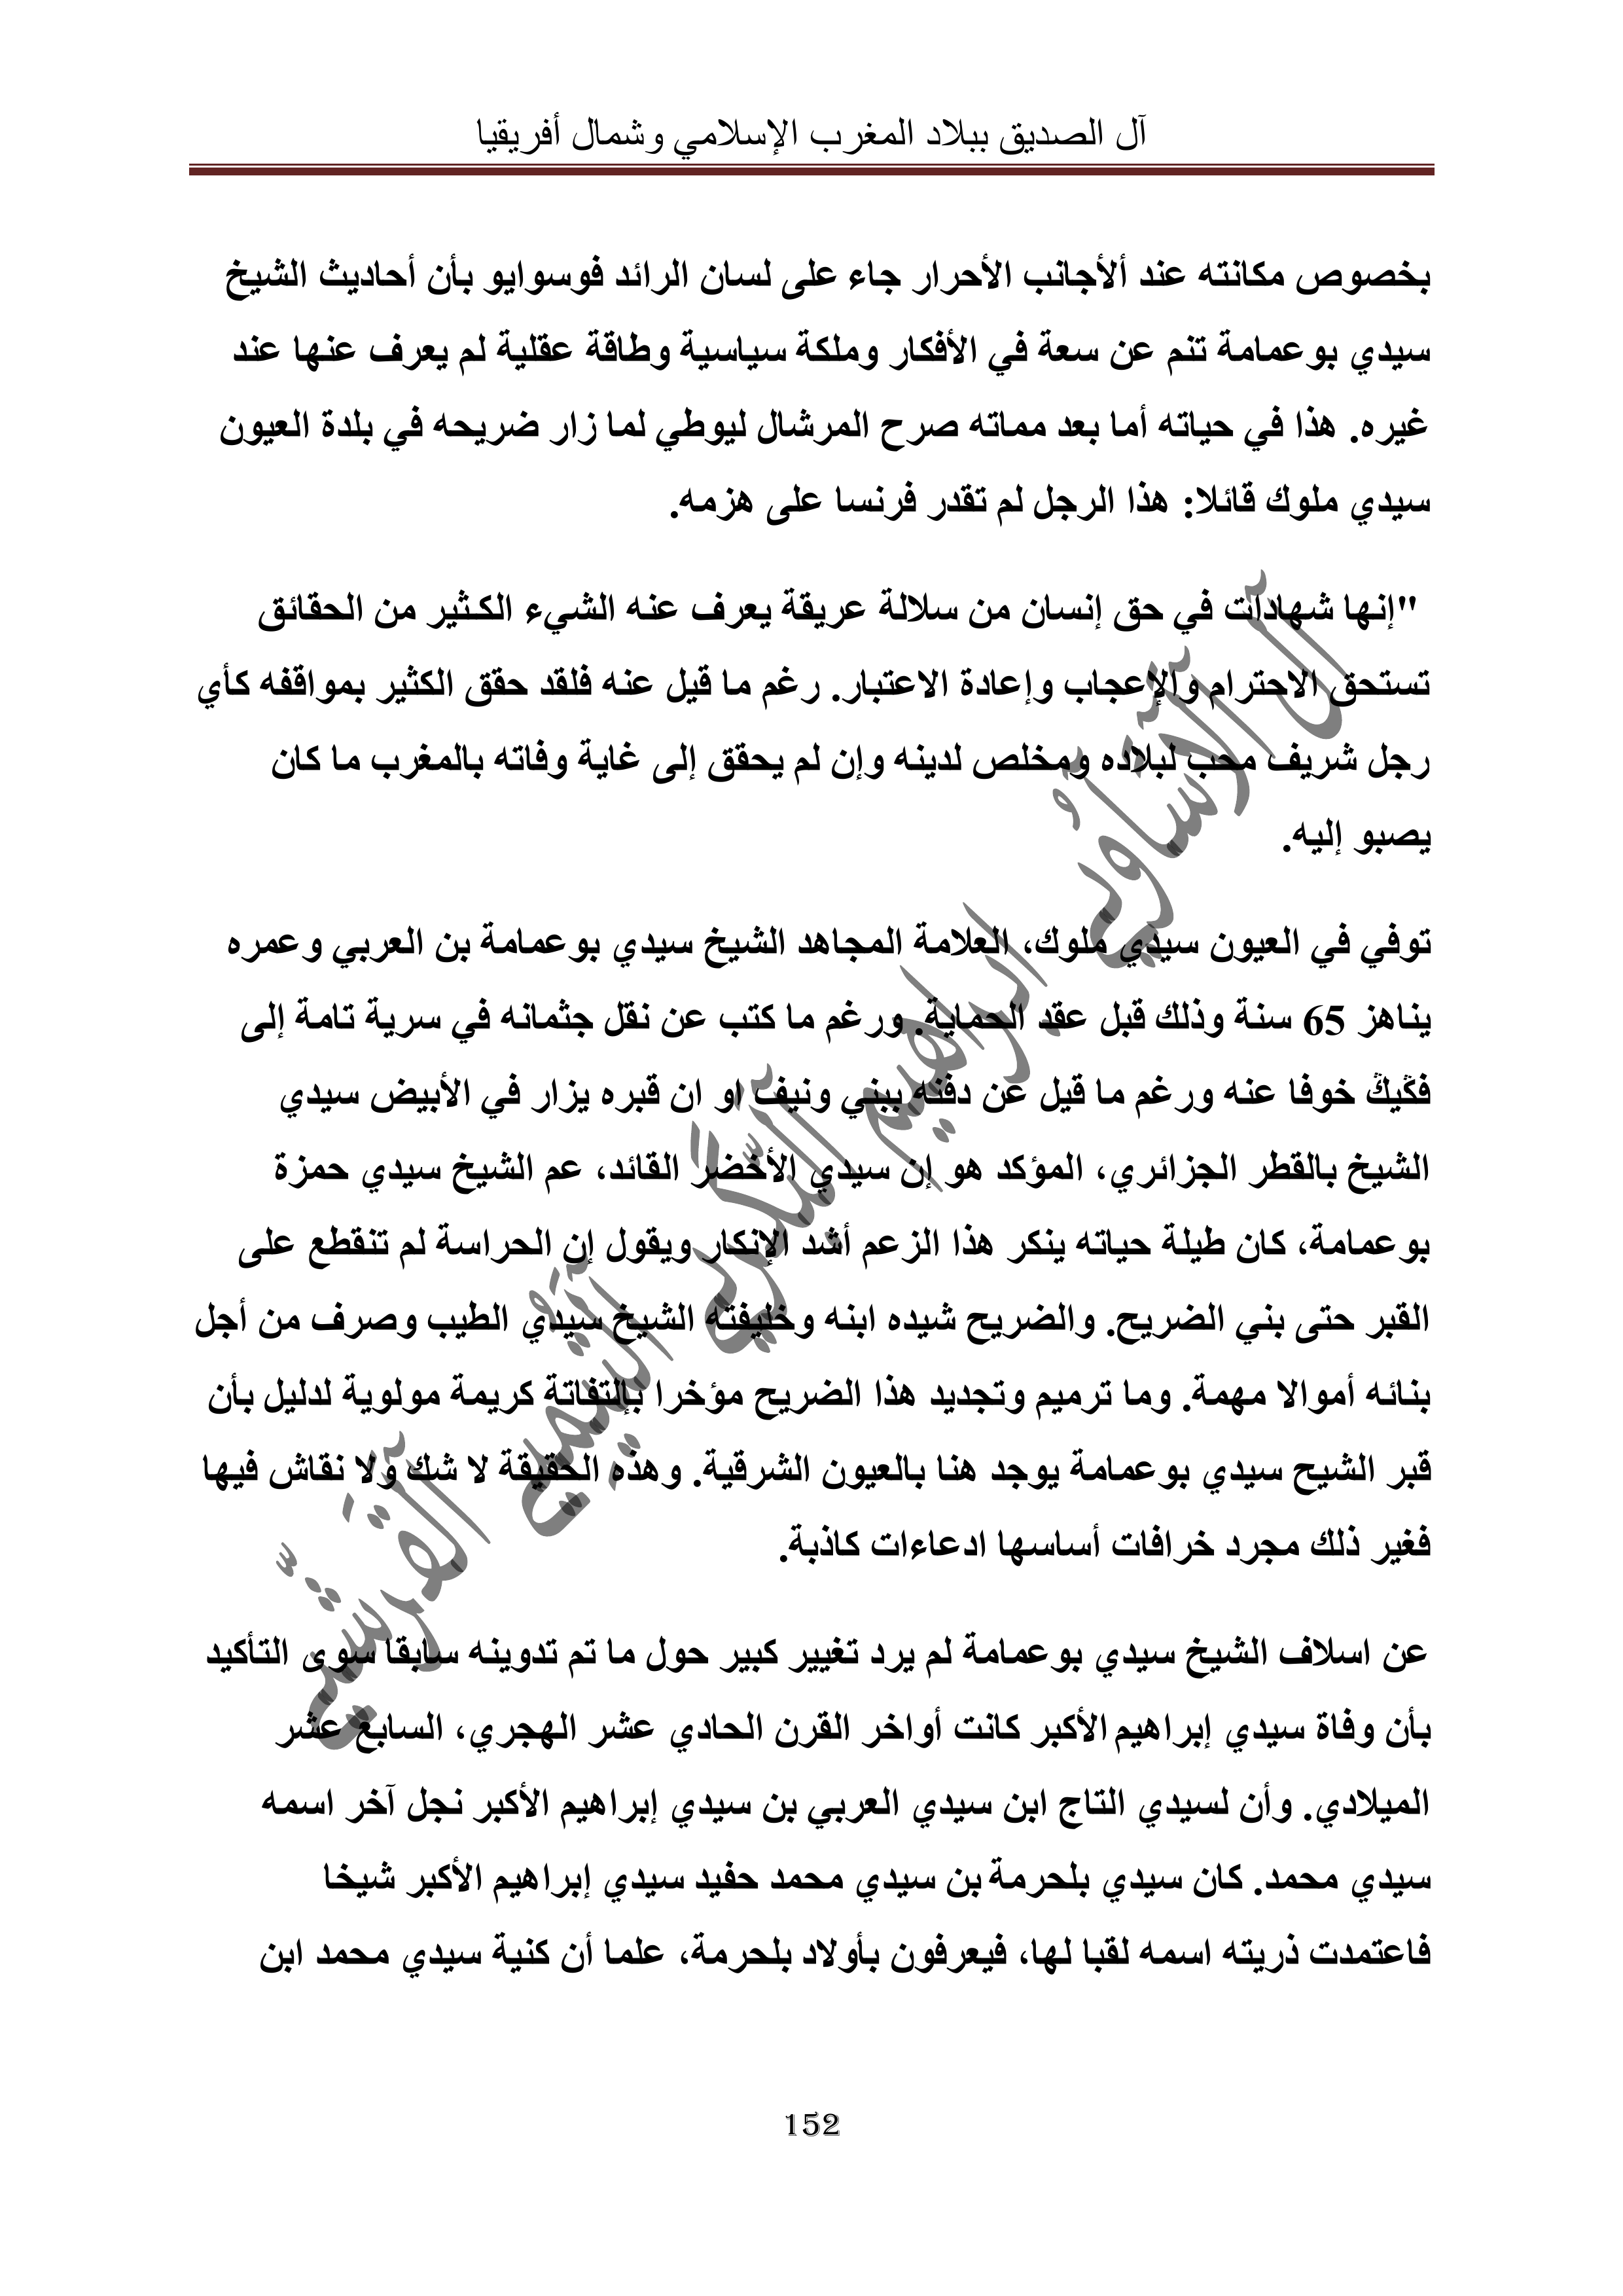 آل الصديق ببلاد المغرب الإسلامي وشمال أفريقيا
بخصوص مكانته عند ألأجانب الأحرار جاء على لسان الرائد فوسوايو بأن أحاديث الشيخ
سيدي بوعمامة تنم عن سعة في الأفكار وملكة سياسية وطاقة عقلية لم يعرف عنها عند
غيره. هذا في حياته أما بعد مماته صرح المرشال ليوطي لما زار ضريحه في بلدة العيون
سيدي ملوك قائلا: هذا الرجل لم تقدر فرنسا على هزمه.
"إنها شهادات في حق إنسان من سلالة عريقة يعرف عنه الشيء الكثير من الحقائق
تستحق الاحترام والإعجاب وإعادة الاعتبار. رغم ما قيل عنه فلقد حقق الكثير بمواقفه كأي
رجل شريف محب لبلاده ومخلص لدينه وإن لم يحقق إلى غاية وفاته بالمغرب ما كان
يصبو إليه.
توفي في العيون سيدي ملوك، العلامة المجاهد الشيخ سيدي بوعمامة بن العربي وعمره
يناهز 65 سنة وذلك قبل عقد الحماية. ورغم ما كتب عن نقل جثمانه في سرية تامة إلى
فڭيڭ خوفا عنه ورغم ما قيل عن دفنه ببني ونيف او ان قبره يزار في الأبيض سيدي
الشيخ بالقطر الجزائري، المؤكد هو إن سيدي الأخضر القائد، عم الشيخ سيدي حمزة
بوعمامة، كان طيلة حياته ينكر هذا الزعم أشد الإنكار ويقول إن الحراسة لم تنقطع على
القبر حتى بني الضريح. والضريح شيده ابنه وخليفته الشيخ سيدي الطيب وصرف من أجل
بنائه أموالا مهمة. وما ترميم وتجديد هذا الضريح مؤخرا بإلتفاتة كريمة مولوية لدليل بأن
قبر الشيح سيدي بوعمامة يوجد هنا بالعيون الشرقية. وهذه الحقيقة لا شك ولا نقاش فيها
فغير ذلك مجرد خرافات أساسها ادعاءات كاذبة.
عن اسلاف الشيخ سيدي بوعمامة لم يرد تغيير كبير حول ما تم تدوينه سابقا سوى التأكيد
بأن وفاة سيدي إبراهيم الأكبر كانت أواخر القرن الحادي عشر الهجري، السابع عشر
الميلادي. وأن لسيدي التاج ابن سيدي العربي بن سيدي إبراهيم الأكبر نجل آخر اسمه
سيدي محمد. كان سيدي بلحرمة بن سيدي محمد حفيد سيدي إبراهيم الأكبر شيخا
فاعتمدت ذريته اسمه لقبا لها، فيعرفون بأولاد بلحرمة، علما أن كنية سيدي محمد ابن
152